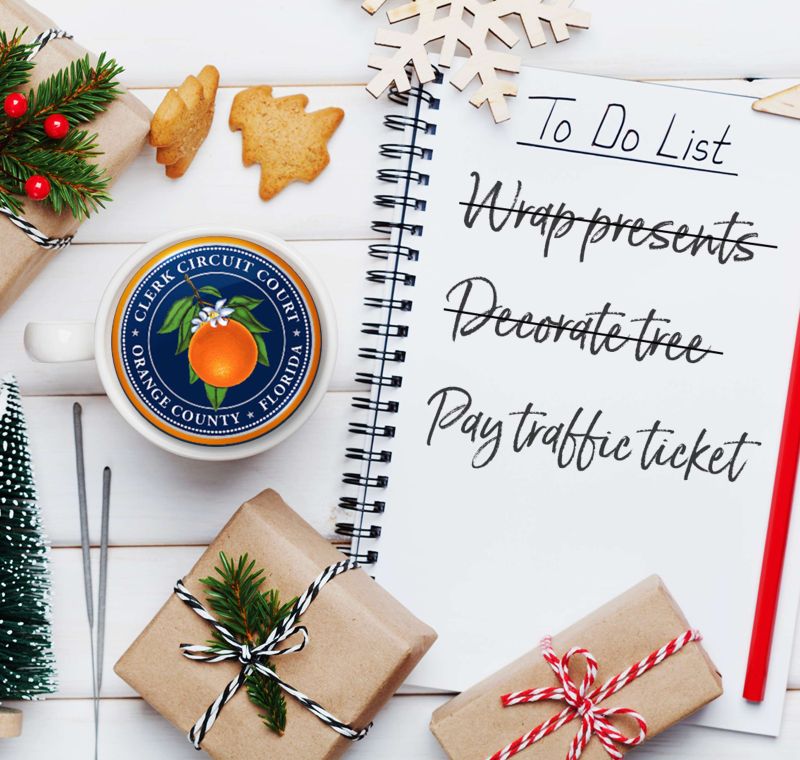 To Do List
Wrap presents
Decorate tree
Pay traffic ticket
CLERK CIRCUIT COURT
ORANGE COUNTY ★ FLORIDA